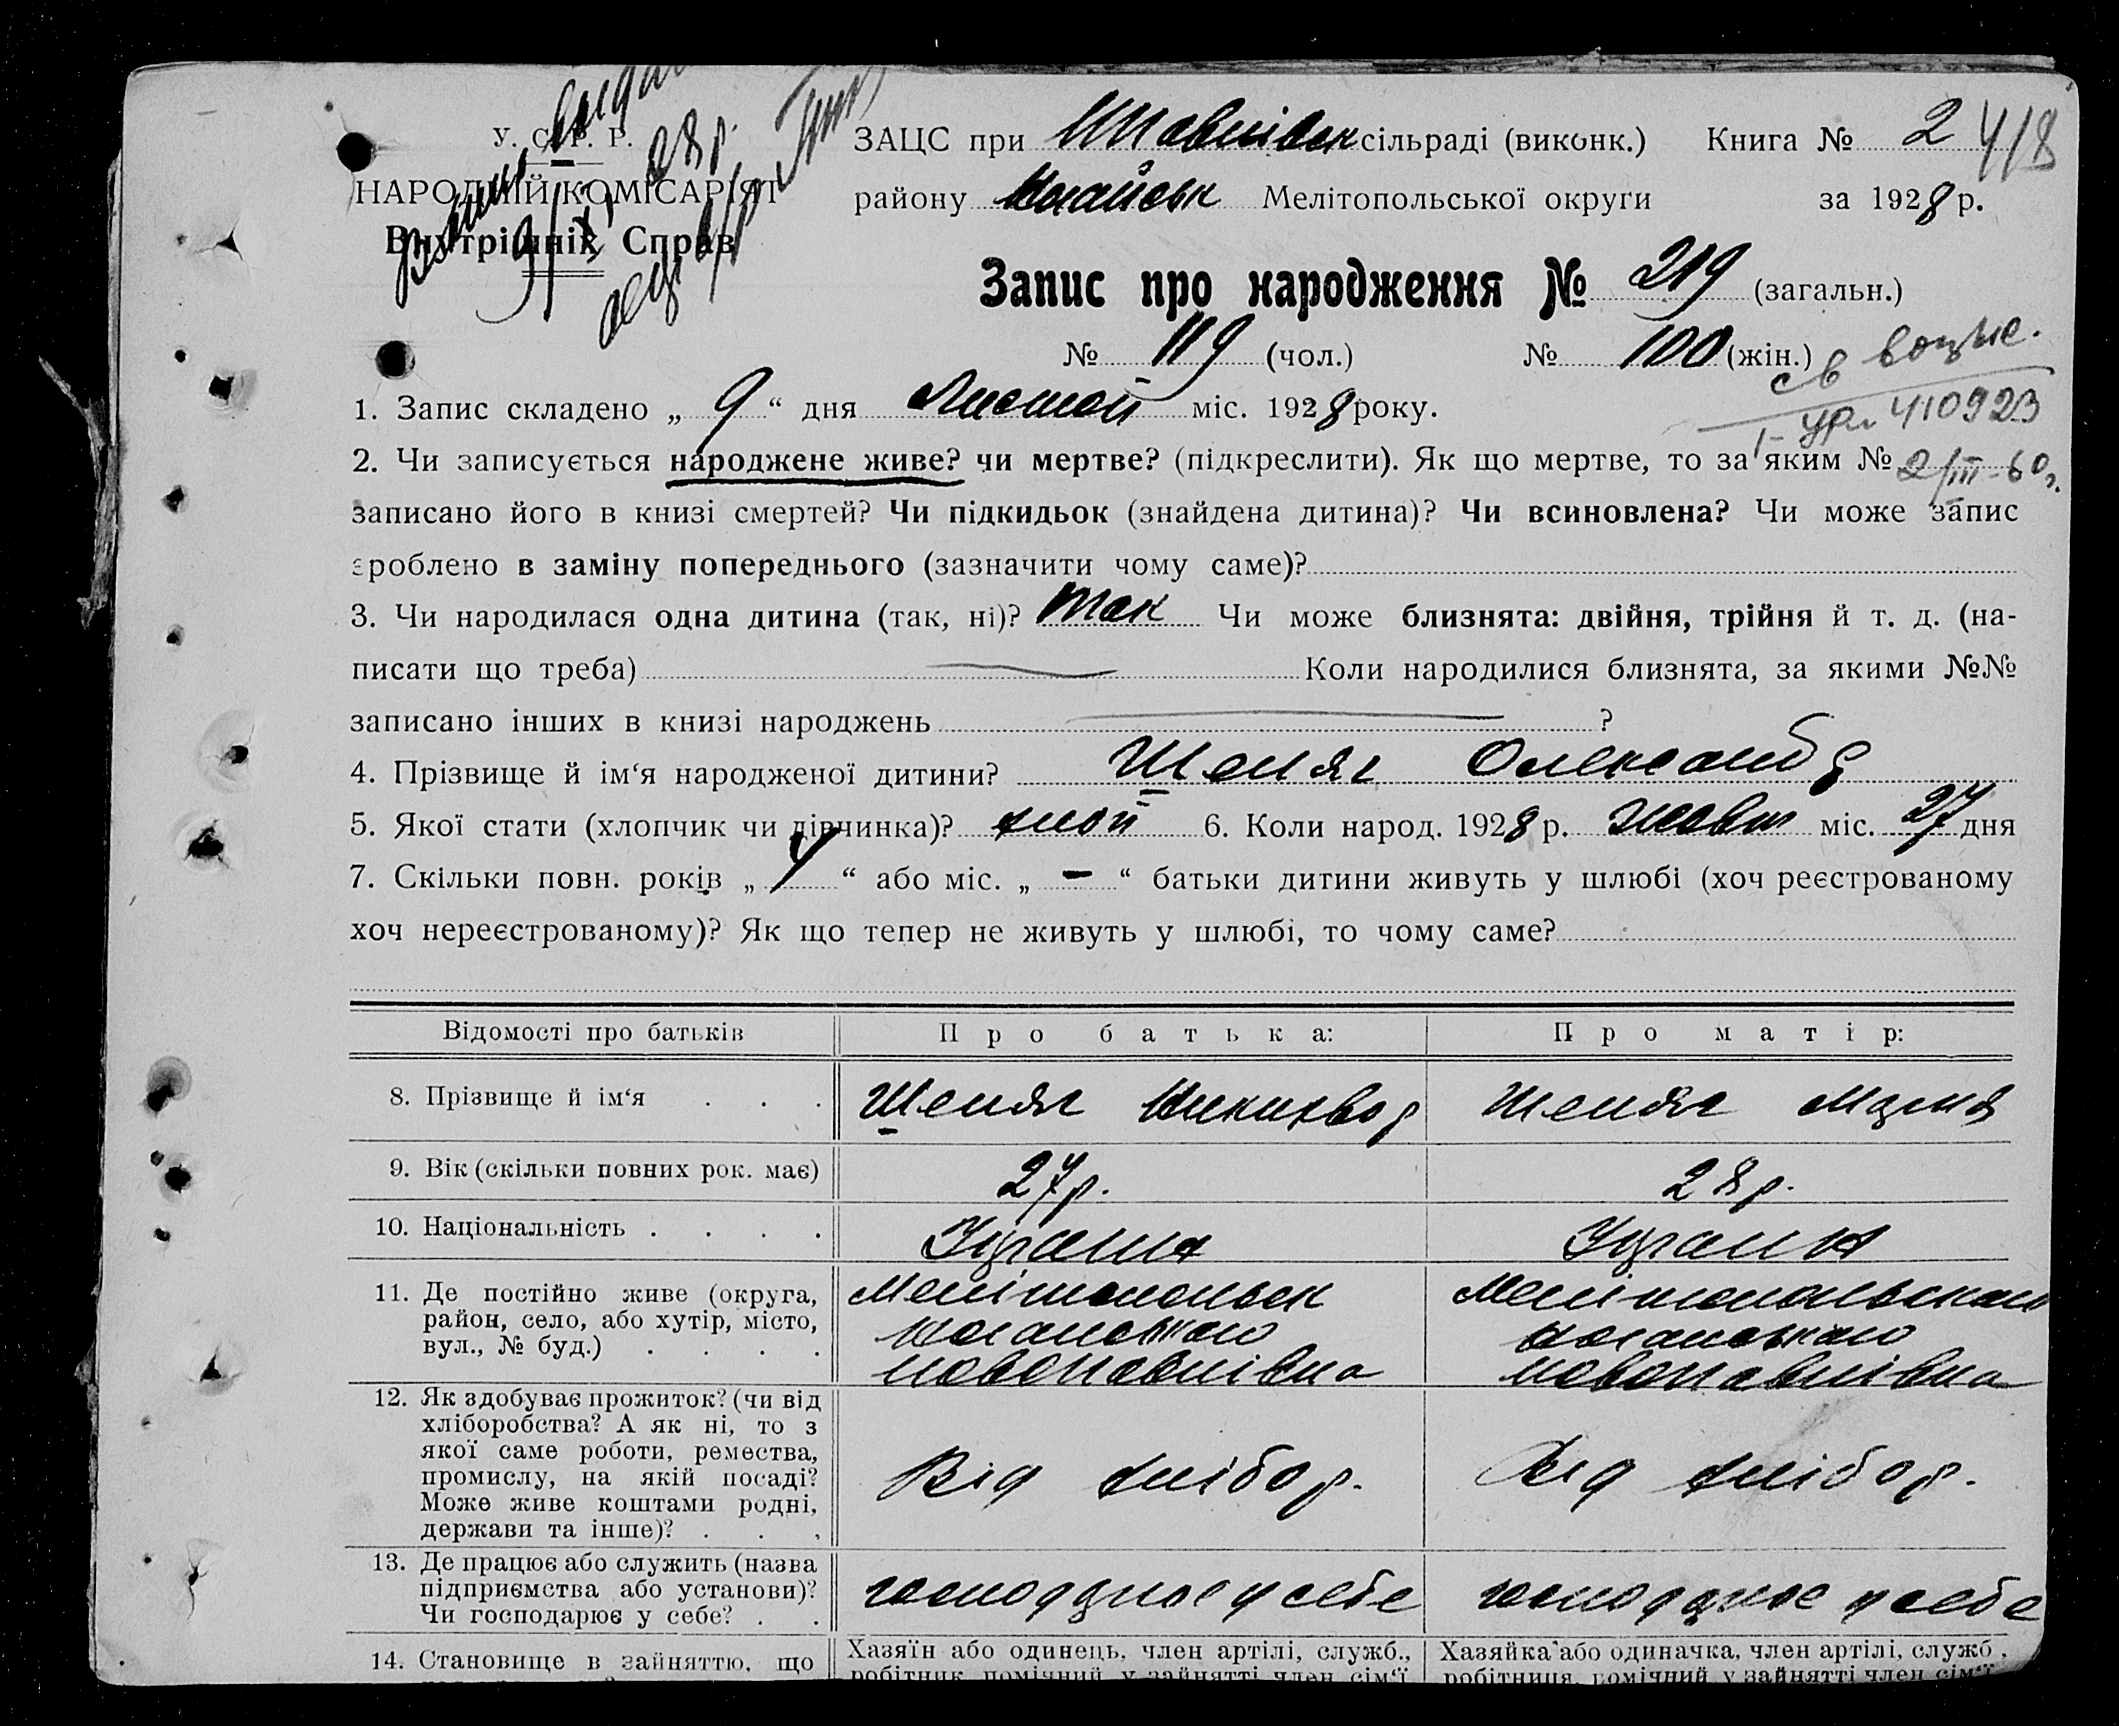 У. С. Р. Р.
НАРОДНІЙ КОМІСАРІЯТ
Внутрішніх Справ
28 р.
ЗАЦС при сільраді (виконк.) Книга № 2 418
району Мелітопольської округи за 1928 р.
Запис про народження № 219 (загальн.)
№ 119 (чол.) № 100 (жін.)
410923
1. Запис складено „ 9 “ дня Листоп міс. 1928 року.
2. Чи записується народжене живе? чи мертве? (підкреслити). Як що мертве, то за яким №
2/III-60 г.
записано його в книзі смертей? Чи підкидьок (знайдена дитина)? Чи всиновлена? Чи може запис
зроблено в заміну попереднього (зазначити чому саме)?
3. Чи народилася одна дитина (так, ні)? так Чи може близнята: двійня, трійня й т. д. (на-
писати що треба) Коли народилися близнята, за якими №№
записано інших в книзі народжень ?
4. Прізвище й ім‘я народженої дитини? Шеляг Олександр
5. Якої стати (хлопчик чи дівчинка)? хлоп 6. Коли народ. 1928 р. Жовт міс. 27 дня
7. Скільки повн. років „ “ або міс. „ – “ батьки дитини живуть у шлюбі (хоч реєстрованому
хоч нереєстрованому)? Як що тепер не живуть у шлюбі, то чому саме?
Відомості про батьків Про батька: Про матір:
8. Прізвище й ім‘я . . . Шеляг Никифор Шеляг
9. Вік (скільки повних рок. має) 27 р. 28 р.
10. Національність . . . . Україн Україн
11. Де постійно живе (округа, Мелітопольськ Мелітопольськой
район, село, або хутір, місто, Ногайського Ногайського
вул., № буд.) . . . . Новопавлівка Новопавлівка
12. Як здобуває прожиток? (чи від
хліборобства? А як ні, то з
якої саме роботи, ремества, Від хлібор. Від хлібор.
промислу, на якій посаді?
Може живе коштами родні,
держави та інше)? . . .
13. Де працює або служить (назва
підприємства або установи)? господарює у себе господарює у себе
Чи господарює у себе? . .
14. Становище в зайняттю, що Хазяїн або одинець, член артілі, служб., Хазяйка або одиначка, член артілі, служб.,
робітник, помічний у зайнятті член сім‘ї робітниця, помічний у зайнятті член сім‘ї